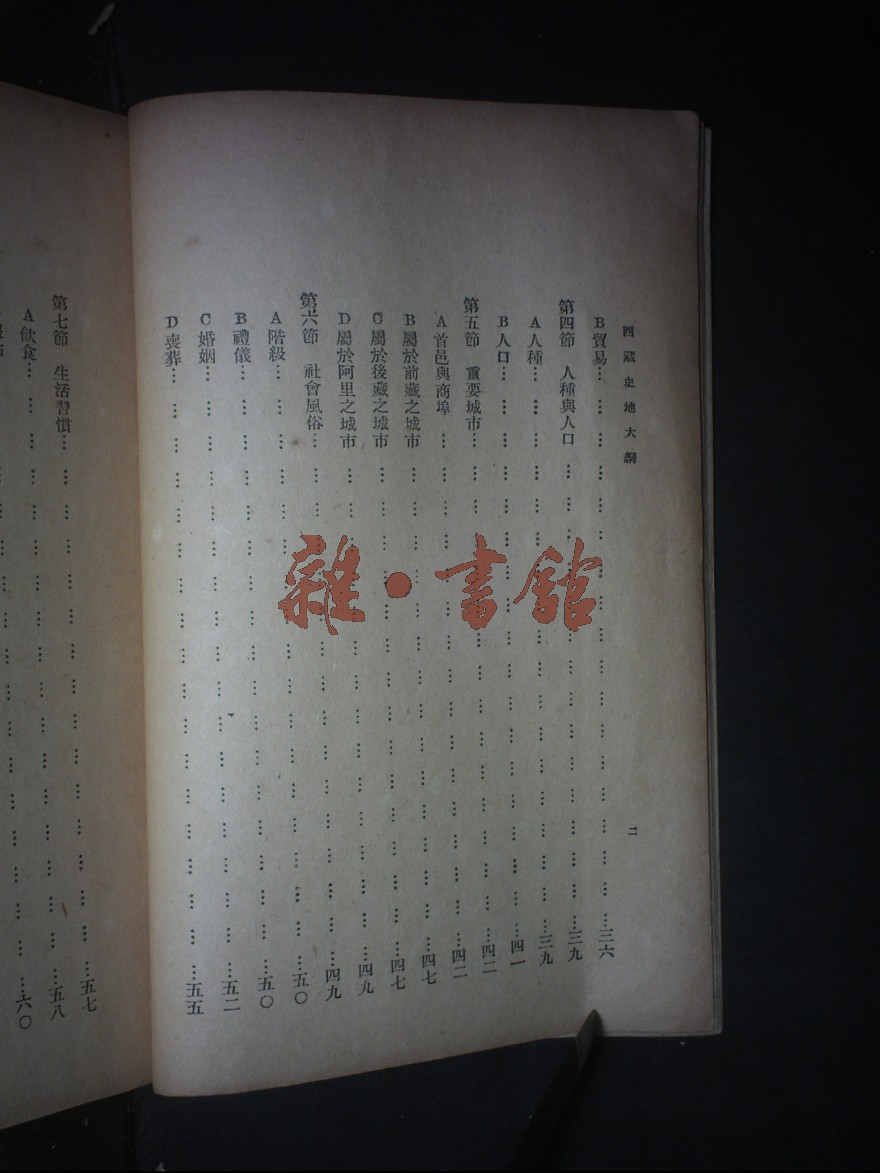 西藏史地大綱 二
B 貿易… … … … … … … … … … … …三六
第四節 人種與人口 … … … … … … … … …三九
A 人種… … … … … … … … … … … …三九
B 人口… … … … … … … … … … … …四一
第五節 重要城市… … … … … … … … … …四二
A 首邑與商埠 … … … … … … … … … …四二
B 屬於前藏之城市 … … … … … … … … …四七
C 屬於後藏之城市 … … … … … … … … …四七
D 屬於阿里之城市 … … … … … … … … …四九
第六節 社會風俗… … … … … … … … … …四九
A 階級… … … … … … … … … … … …五〇
B 禮儀… … … … … … … … … … … …五〇
C 婚姻… … … … … … … … … … … …五二
D 喪葬… … … … … … … … … … … …五五
第七節 生活習慣… … … … … … … … … …五七
A 飲食… … … … … … … … … … … …五八
…六〇
雜·書館